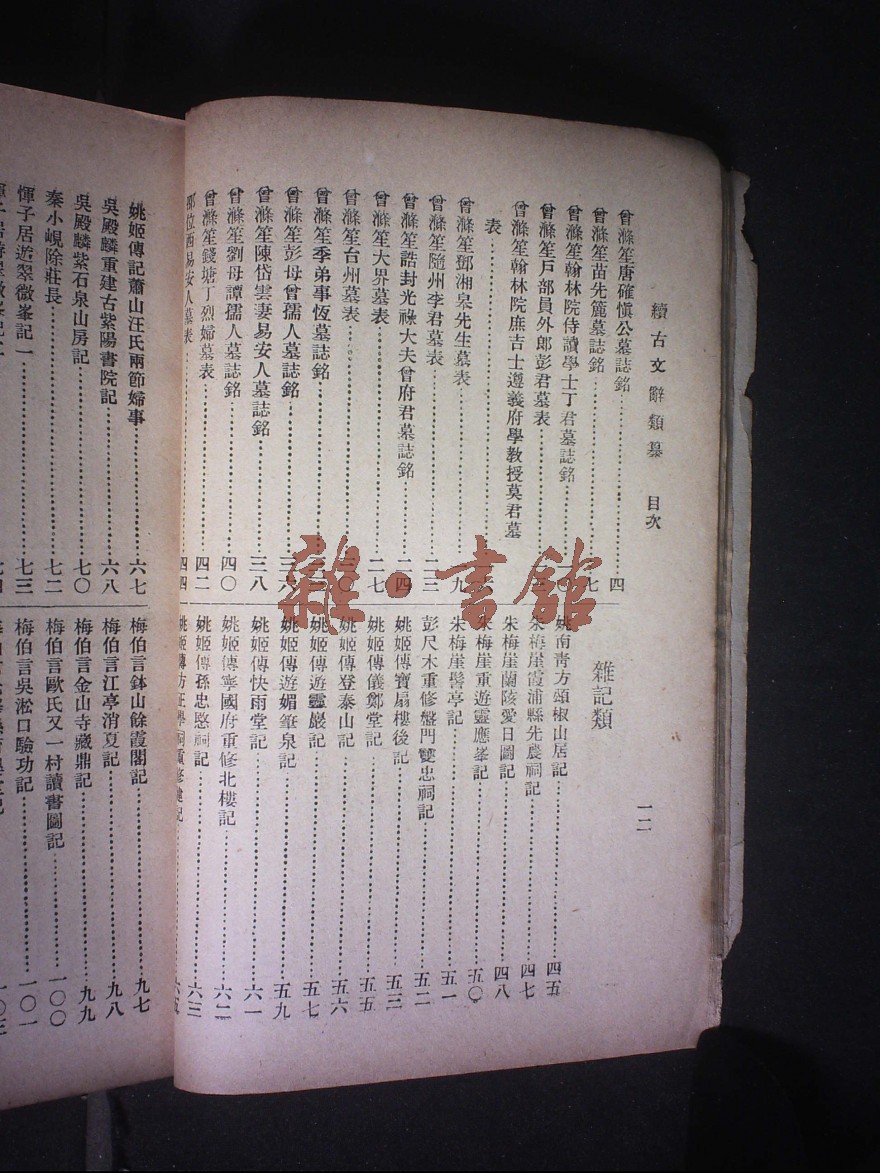 續古文辭類纂 目次
一二
曾滌笙唐確愼公墓誌銘四
曾滌笙苗先簏墓誌銘七
曾滌笙翰林院侍讀學士丁君墓誌銘
曾滌笙戶部員外郎彭君墓表
曾滌笙翰林院庶吉士遵義府學教授莫君墓
表
曾滌笙鄧湘皋先生墓表
曾滌笙隨州李君墓表二三
曾滌笙誥封光祿大夫曾府君墓誌銘二四
曾滌笙大界墓表二七
曾滌笙台州墓表三〇
曾滌笙季弟事恆墓誌銘
曾滌笙彭母曾孺人墓誌銘三六
曾滌笙陳岱雲妻易安人墓誌銘三八
曾滌笙劉母譚孺人墓誌銘四〇
曾滌笙錢塘丁烈婦墓表四二
邵位西易安人墓表四四
雜記類
姚南靑方頌椒山居記四五
朱梅崖霞浦縣先農祠記四七
朱梅崖蘭陔愛日圖記四八
朱梅崖重遊靈應峯記五〇
朱梅崖髻亭記五一
彭尺木重修盤門雙忠祠記五二
姚姬傳寶扇樓後記五三
姚姬傳儀鄭堂記五五
姚姬傳登泰山記五六
姚姬傳遊靈巖記五七
姚姬傳遊媚筆泉記五九
姚姬傳快雨堂記六一
姚姬傳寧國府重修北樓記六二
姚姬傳孫忠愍祠記六三
姚姬傳方正學祠重修建記六五
姚姬傳記蕭山汪氏兩節婦事六七
吳殿麟重建古紫陽書院記六八
吳殿麟紫石泉山房記七〇
秦小峴除莊長七二
惲子居遊翠微峯記一七三
梅伯言鉢山餘霞閣記九七
梅伯言江亭消夏記九八
梅伯言金山寺藏鼎記九九
梅伯言歐氏又一村讀書圖記一〇〇
梅伯言吳淞口驗功記一〇一
雜·書館